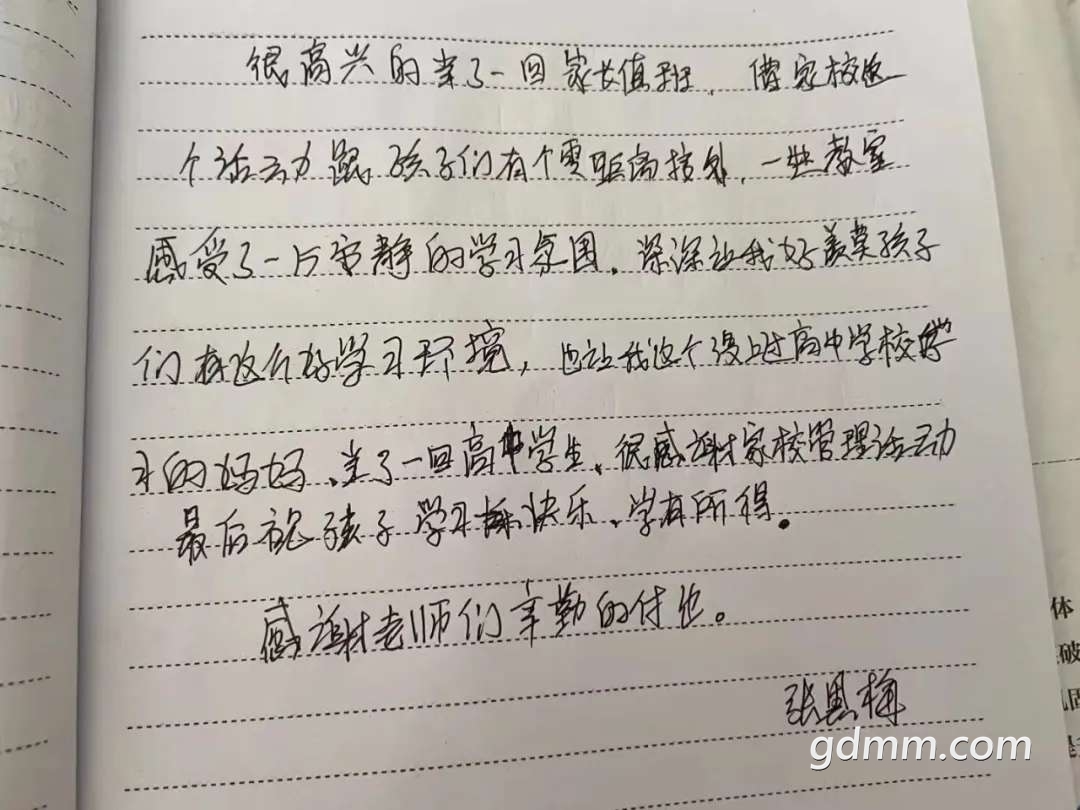 很高兴的当了一回家长值班，借家校这
个活动跟孩子们有个零距离接触，一些教室
感受了一片安静的学习氛围，深深让我好羡慕孩子
们有这个好学习环境，也让我这个没上过高中学校学
习的妈妈、当了一回高中学生、很感谢家校管理活动
最后祝孩子学习快乐、学有所得。
感谢老师们辛勤的付出。
张思梅
gdmm.com
体
破
固
是